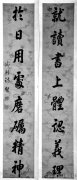 就讀書上體認義理
於日用處磨礪精神